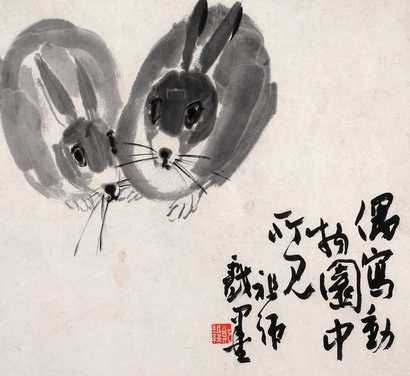 偶寫動
物園中
所見
祖綿
戲墨